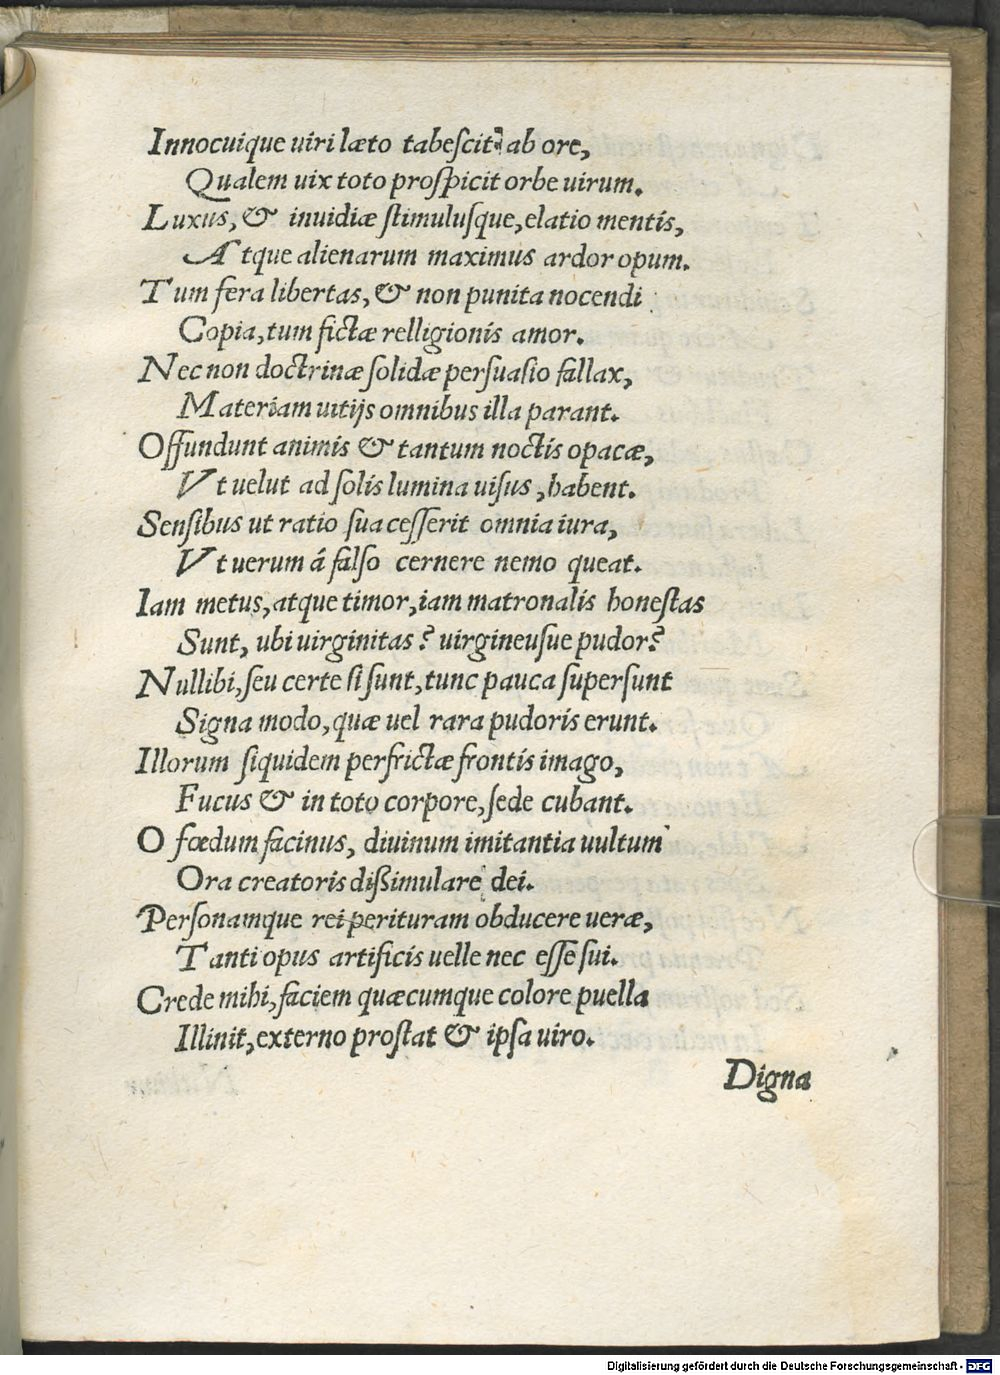 Innocuique uiri læto tabescit ab ore,
Qualem uix toto prospicit orbe uirum.
Luxus, & inuidiæ stimulusque, elatio mentis,
Atque alienarum maximus ardor opum.
Tum fera libertas, & non punita nocendi
Copia, tum fictæ relligionis amor.
Nec non doctrinæ solidæ persuasio fallax,
Materiam uitijs omnibus illa parant.
Offundunt animis & tantum noctis opacæ,
Vt uelut ad solis lumina uisus, habent.
Sensibus ut ratio sua cesserit omnia iura,
Vt uerum á falso cernere nemo queat.
Iam metus, atque timor, iam matronalis honestas
Sunt, ubi uirginitas? uirgineusue pudor?
Nullibi, seu certe si sunt, tunc pauca supersunt
Signa modo, quæ uel rara pudoris erunt.
Illorum siquidem perfrictæ frontis imago,
Fucus & in toto corpore, sede cubant.
O fœdum facinus, diuinum imitantia uultum
Ora creatoris dißimulare dei.
Personamque rei perituram obducere ueræ,
Tanti opus artificis uelle nec esse sui.
Crede mihi, faciem quæcumque colore puella
Illinit, externo prostat & ipsa uiro.
Digna
Digitalisierung gefördert durch die Deutsche Forschungsgemeinschaft - DFG